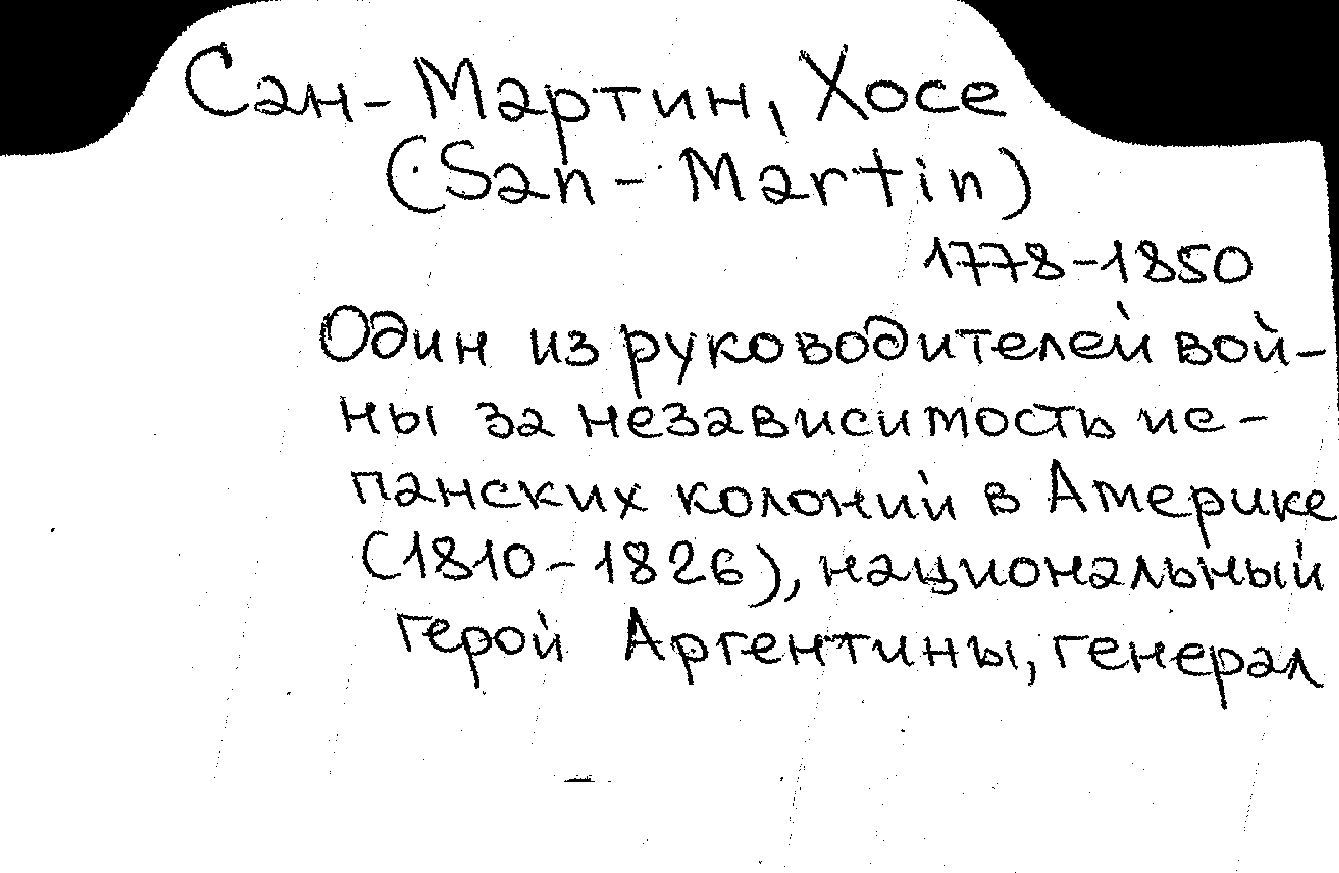 Сан-Мартин, Хосе
(San-Martin)
1778-1850
Один из руководителей вой-
ны за независимость ис-
панских колоний в Америке
(1810-1826), национальный
герой Аргентины, генерал